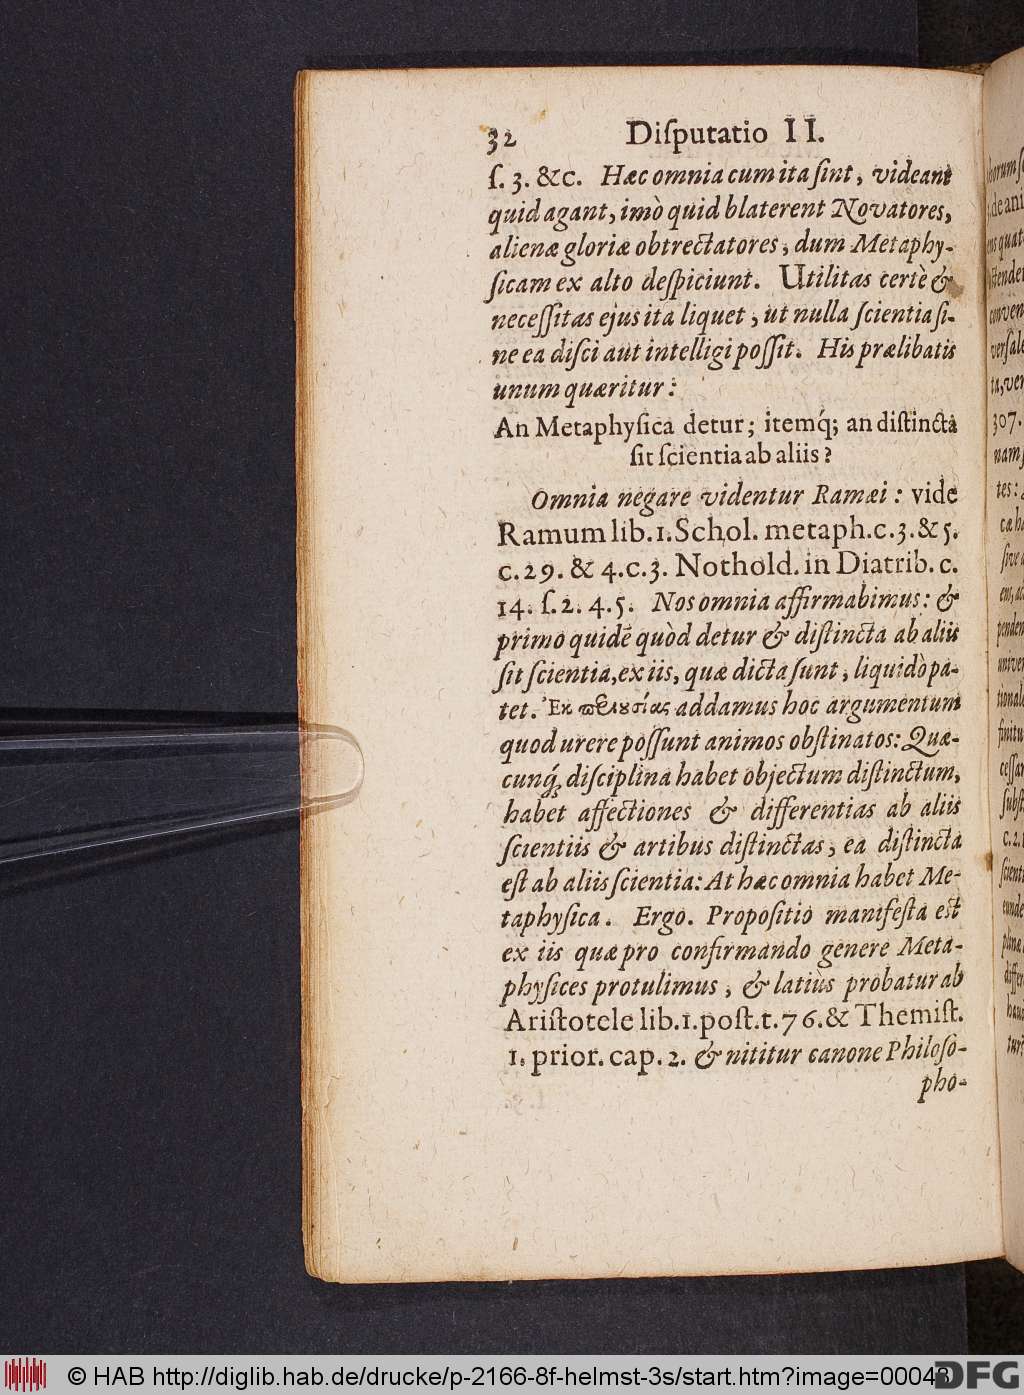 32 Diſputatio II.
ſ. 3. &c. Hæc omnia cum ita ſint, videant
quid agant, imò quid blaterent Novatores,
alienæ gloriæ obtrectatores, dum Metaphy-
ſicam ex alto deſpiciunt. Utilitas certè &
neceſſitas ejus ita liquet, ut nulla ſcientia ſi-
ne ea diſci aut intelligi poſſit. His prælibatis
unum quæritur:
An Metaphyſica detur; itemq́; an diſtincta
ſit ſcientia ab aliis?
Omnia negare videntur Ramæi: vide
Ramum lib. 1. Schol. metaph. c. 3. & 5.
c. 29. & 4. c. 3. Nothold. in Diatrib. c.
14. ſ. 2. 4. 5. Nos omnia affirmabimus: &
primo quidē quòd detur & diſtincta ab aliis
ſit ſcientia, ex iis, quæ dicta ſunt, liquidò pa-
tet. Ἐκ περιουσίας addamus hoc argumentum
quod urere poſſunt animos obſtinatos: Quæ-
cunq́; diſciplina habet objectum diſtinctum,
habet affectiones & differentias ab aliis
ſcientiis & artibus diſtinctas, ea diſtincta
eſt ab aliis ſcientia: At hæc omnia habet Me-
taphyſica. Ergo. Propoſitio manifeſta eſt
ex iis quæ pro confirmando genere Meta-
phyſices protulimus, & latiùs probatur ab
Ariſtotele lib. 1. poſt. t. 76. & Themiſt.
1. prior. cap. 2. & nititur canone Philoſo-
pho-
© HAB http://diglib.hab.de/drucke/p-2166-8f-helmst-3s/start.htm?image=00048
DFG